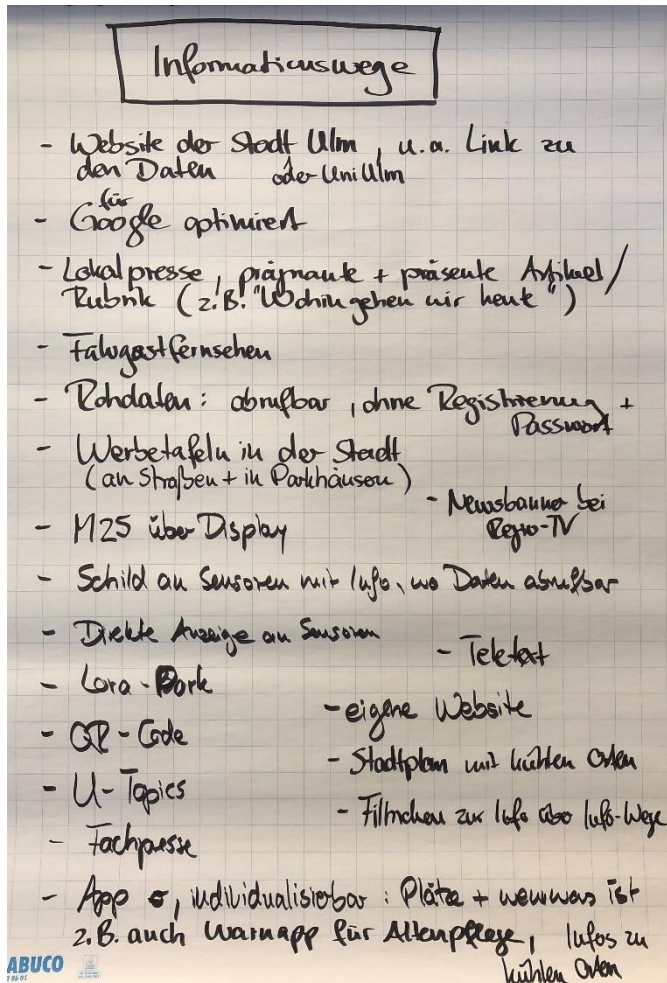 Informationswege
- Website der Stadt Ulm, u.a. Link zu
den Daten oder Uni Ulm
für
- Google optimiert
- Lokalpresse, prägnante + präsente Artikel/
Rubrik (z.B. "Wohin gehen wir heute")
- Fahrgastfernsehen
- Rohdaten: abrufbar, ohne Registrierung +
Passwort
- Werbetafeln in der Stadt
(an Straßen + in Parkhäusern)
- Newsbanner bei
Regio-TV
- M25 über Display
- Schild an Sensoren mit Info, wo Daten abrufbar
- Direkte Anzeige an Sensoren
- Teletext
- Lora-Park
- eigene Website
- QR-Code
- Stadtplan mit kühlen Orten
- U-Topics
- Filmchen zur Info über Info-Wege
- Fachpresse
- App, individualisierbar: Plätze + wenn was ist
z.B. auch Warnapp für Altenpflege, Infos zu
kühlen Orten
ABUCO